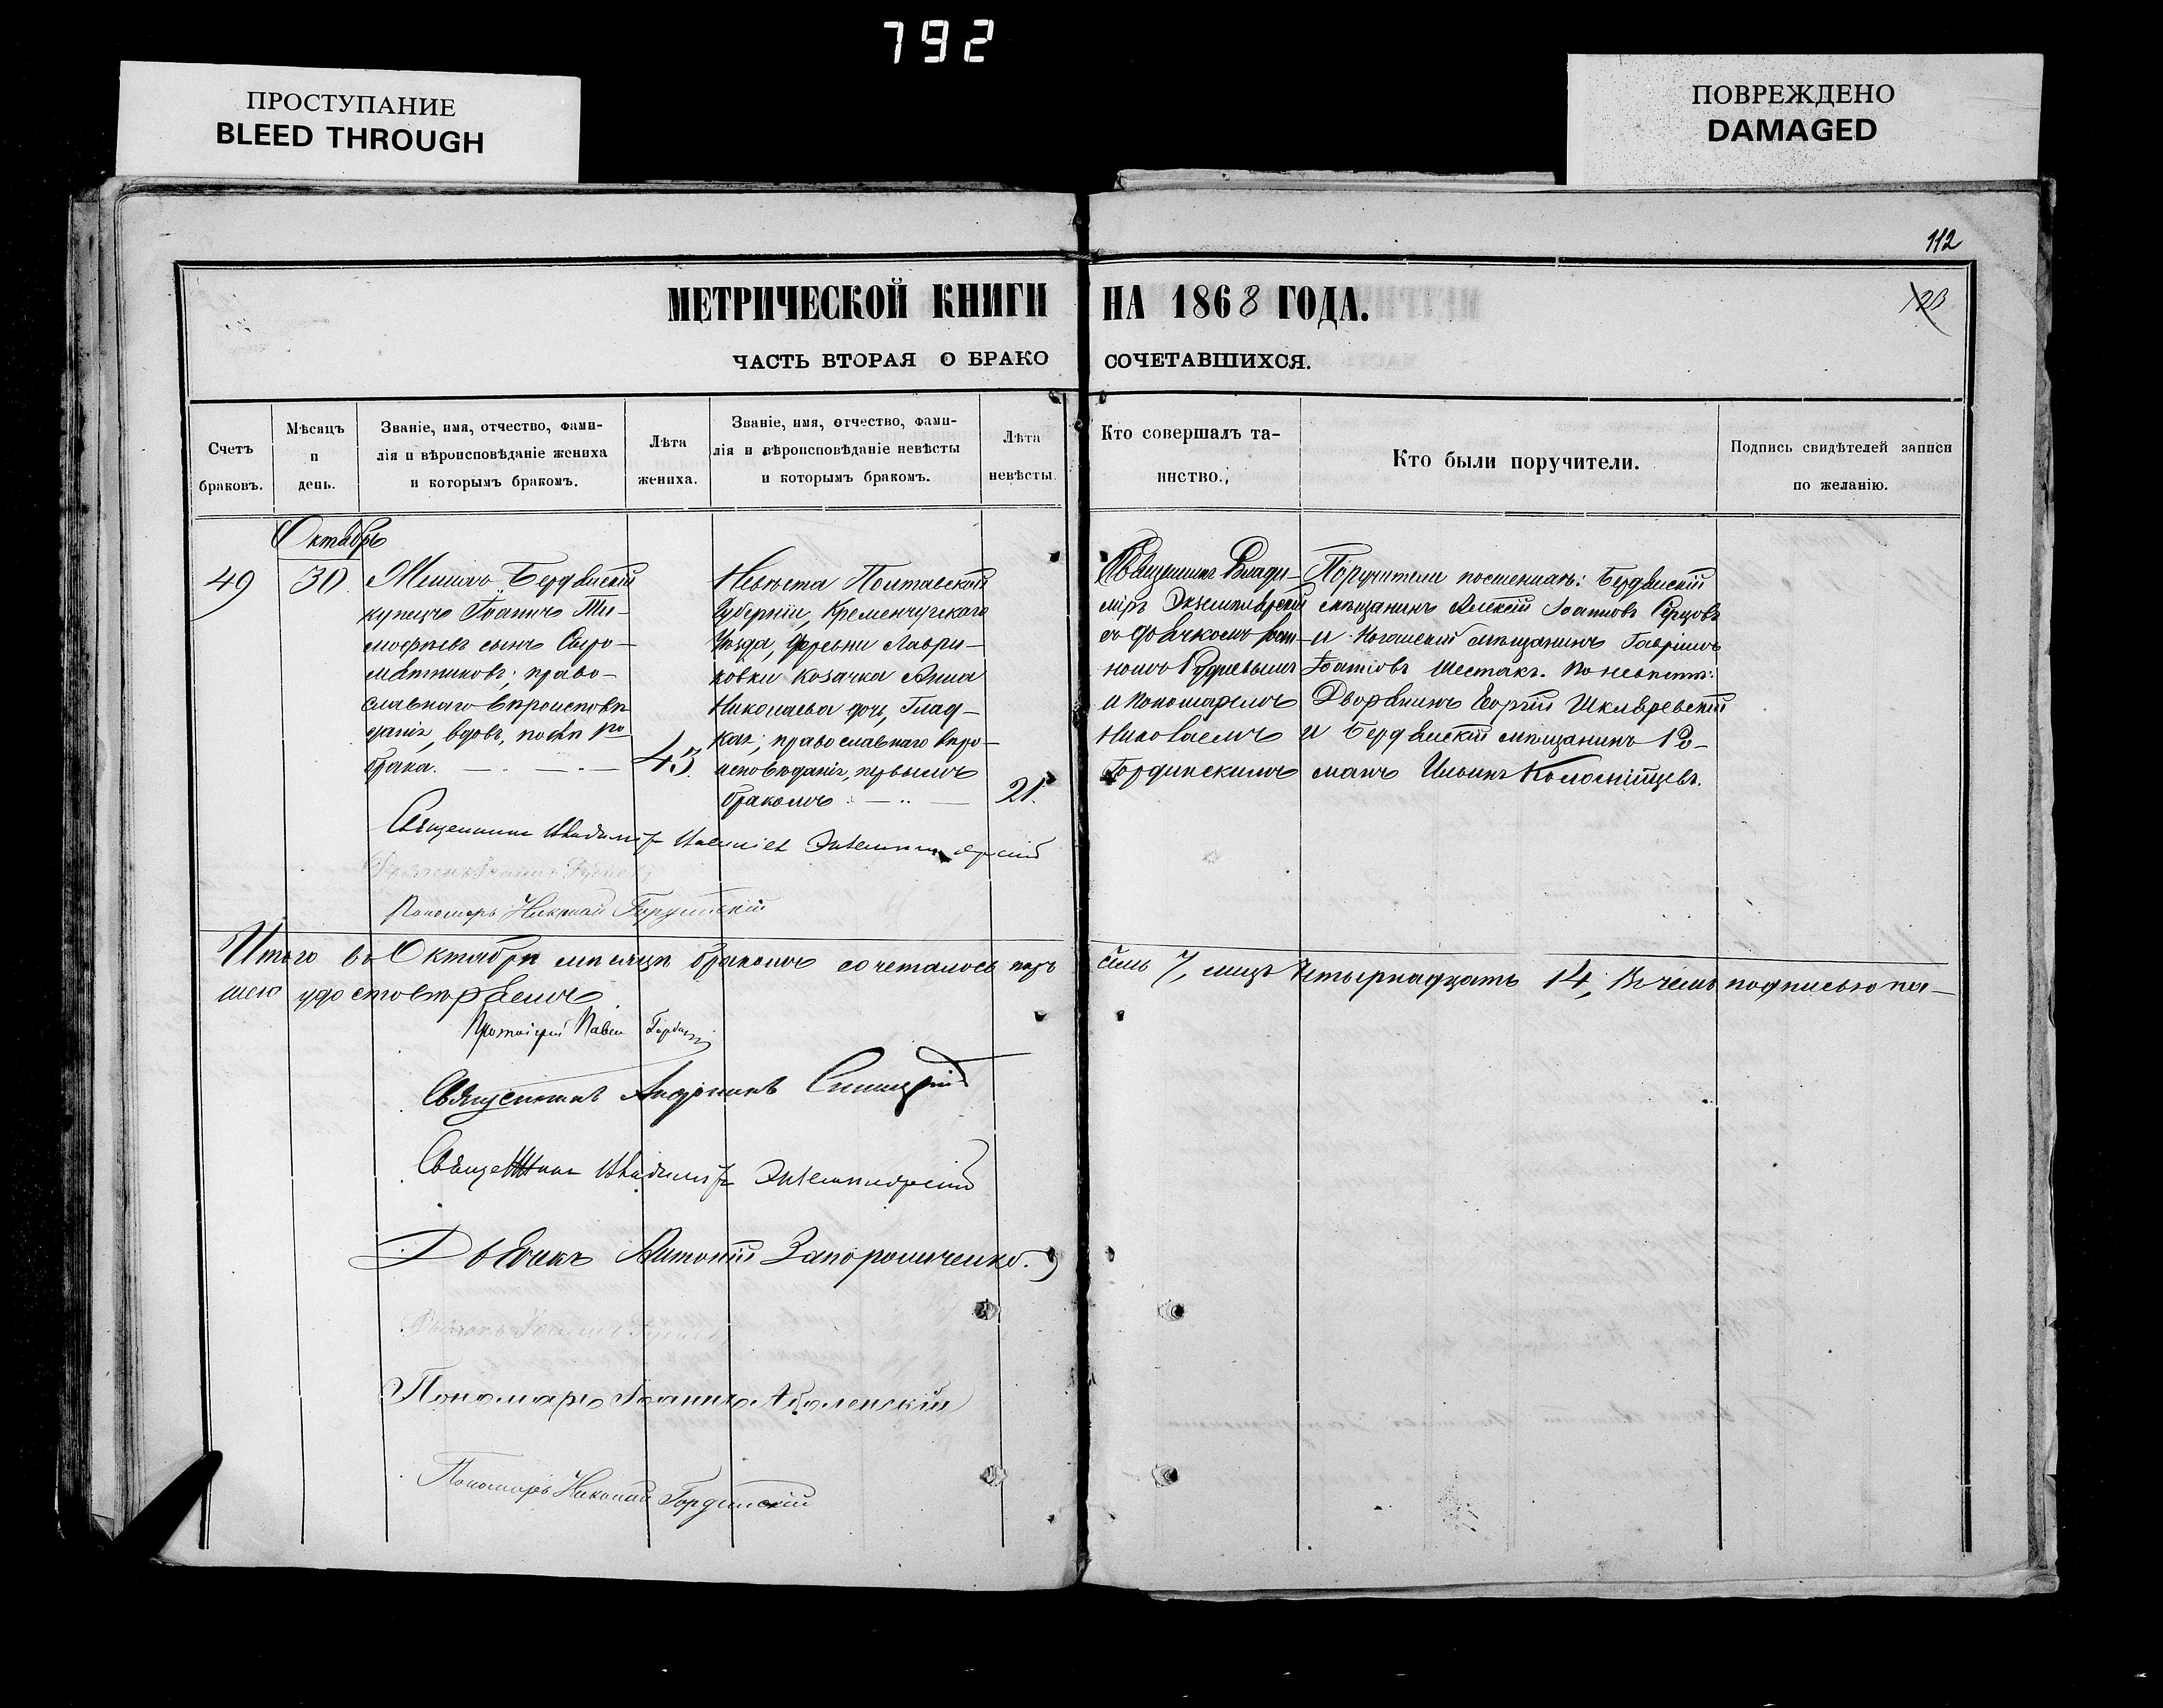 792
ПРОСТУПАНИЕ
BLEED THROUGH
ПОВРЕЖДЕНО
DAMAGED
112
МЕТРИЧЕСКОЙ КНИГИ НА 1868 ГОДА.
ЧАСТЬ ВТОРАЯ О БРАКО СОЧЕТАВШИХСЯ.
Счетъ
браковъ.
Мѣсяцъ
и
день.
Званіе, имя, отчество, фами-
лія и вѣроисповѣданіе жениха
и которымъ бракомъ.
Лѣта
жениха.
Званіе, имя, отчество, фами-
лія и вѣроисповѣданіе невѣсты
и которымъ бракомъ.
Лѣта
невѣсты.
Кто совершалъ та-
инство.
Кто были поручители.
Подпись свидѣтелей записи
по желанію.
Октябрь
49
30
Женихъ Бердянскій
купецъ Іоаннъ Ти-
моѳѣевъ сынъ Сыро-
мятниковъ; право-
славнаго вѣроисповѣ-
данія, вдовъ, послѣ 1го
брака.
45.
Невѣста Полтавской
Губерніи, Кременчугскаго
Уѣзда, Деревни Лаври-
ковки козачка Анна
Николаева дочь, Глад-
кая; православнаго вѣро-
исповѣданія, первымъ
бракомъ
21.
Священникъ Влади-
міръ Экземплярскій
съ дьячкомъ Іоан-
номъ Рудневымъ
и Пономаремъ
Николаемъ
Гординскимъ
Поручители по женихѣ: Бердянскій
мѣщанинъ Алексій Іоанновъ
и Ногайскій мѣщанинъ Гавріилъ
Іоанновъ Шестакъ. По невѣстѣ:
Дворянинъ Георгій Шкляревскій
и Бердянскій мѣщанинъ Ро-
манъ Ильинъ Коломійцевъ.
Священникъ Владиміръ Экземплярскій
Дьячекъ Іоаннъ Рудневъ
Пономарь Николай Гординскій
Итого въ Октябрѣ мѣсяцѣ бракомъ сочеталось паръ семь 7, лицъ четырнадцать 14; Въ чемъ подписью на-
шею удостовѣряемъ
Протоіерей Павелъ
Священникъ Андроникъ Синицкій
Священникъ Владиміръ Экземплярскій
Дьячекъ Антоній Запорожченко.
Дьячекъ Іоаннъ Рудневъ
Пономарь Іоаннъ
Пономарь Николай Гординскій